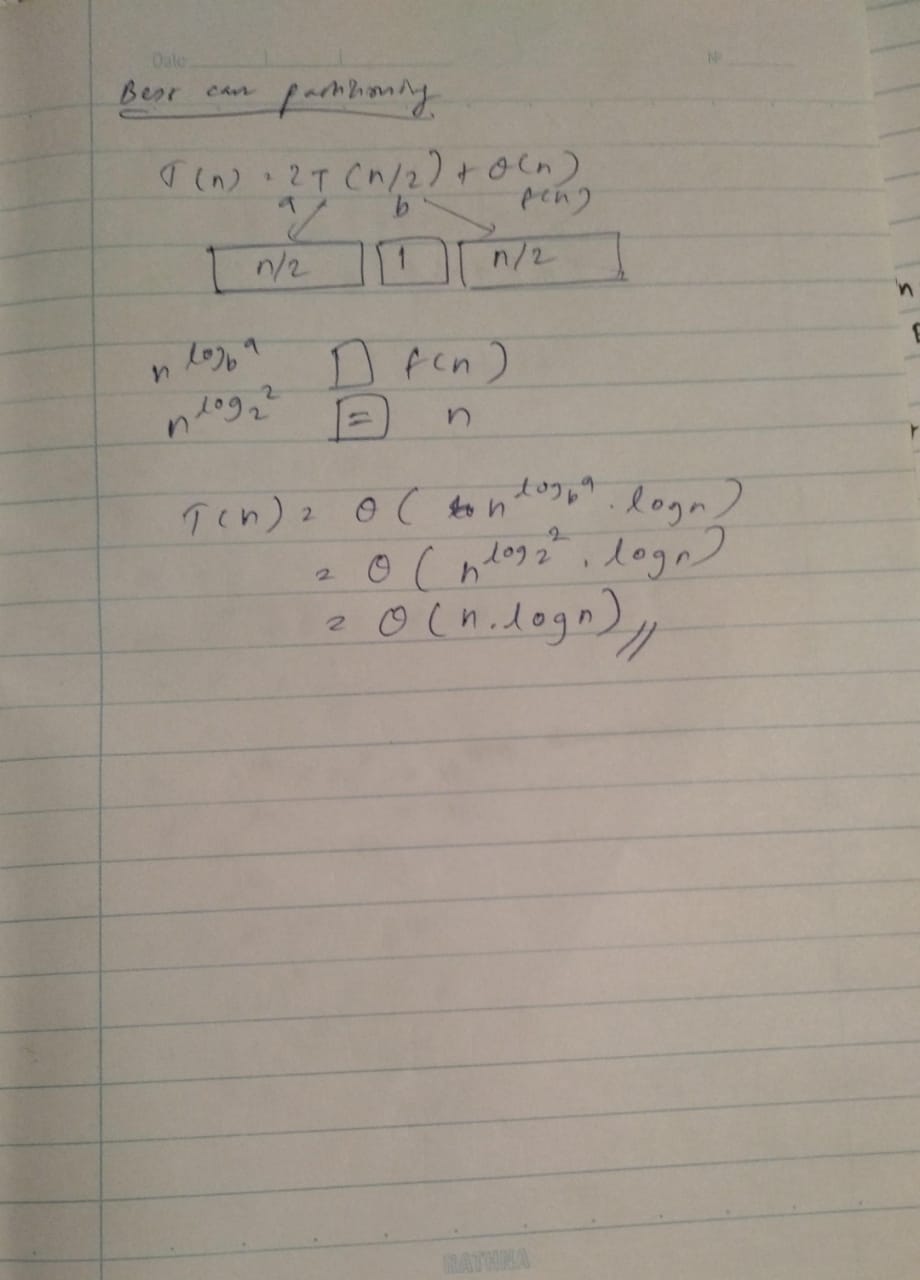 Date
No
Best case partitioning
T(n) = 2T(n/2) + θ(n)
a b f(n)
n/2 1 n/2
n^log_b^a □ f(n)
n^log_2^2 = n
T(n) = θ(n^log_b^a . logn)
= θ(n^log_2^2 . logn)
= θ(n.logn)//
RATHNA